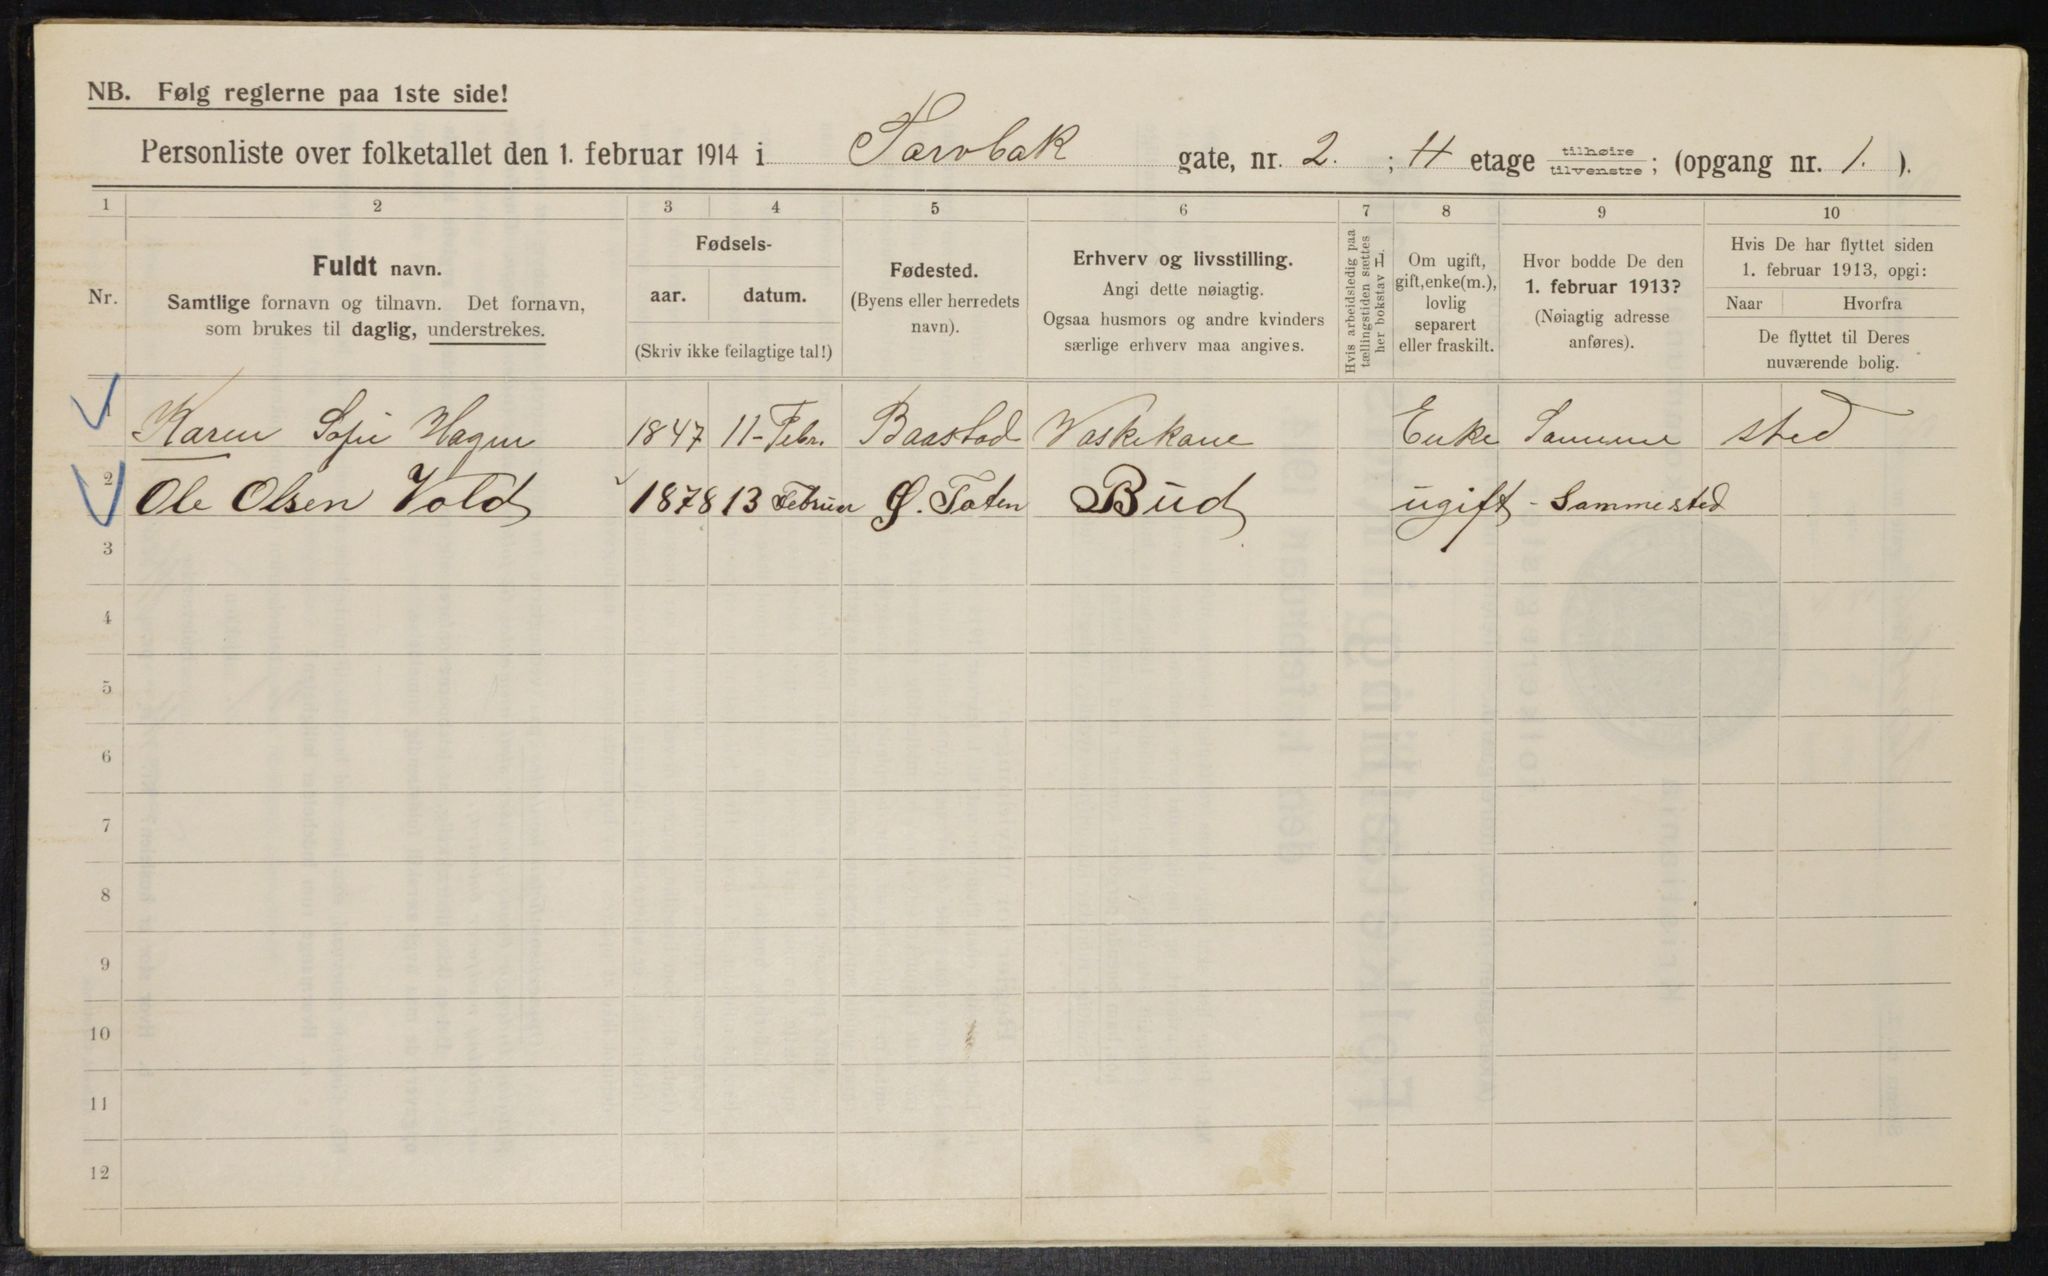 NB. Følg reglerne paa 1ste side!
Personliste over folketallet den 1. februar 1914 i Tørvbak gate, nr. 2. ; 4 etage tilhøire tilvenstre ; (opgang nr. 1. ).
1 2 3 4 5 6 7 8 9 10
Nr.
Fuldt navn.
Samtlige fornavn og tilnavn. Det fornavn,
som brukes til daglig, understrekes.
Fødsels-
aar. datum.
(Skriv ikke feilagtige tal!)
Fødested.
(Byens eller herredets
navn).
Erhverv og livsstilling.
Angi dette nøiagtig.
Ogsaa husmors og andre kvinders
særlige erhverv maa angives.
Hvis arbeidsledig paa
tællingstiden sættes
her bokstav L.
Om ugift,
gift, enke(m.),
lovlig
separert
eller fraskilt.
Hvor bodde De den
1. februar 1913?
(Nøiagtig adresse
anføres).
Hvis De har flyttet siden
1. februar 1913, opgi:
Naar Hvorfra
De flyttet til Deres
nuværende bolig.
1 Karen Sofie Hagen 1847 11-Febr. Baastad Vaskekone Enke Samme sted
2 Ole Olsen Vold 1878 13 Februar Ø. Toten Bud ugift - Sammested
3
4
5
6
7
8
9
10
11
12